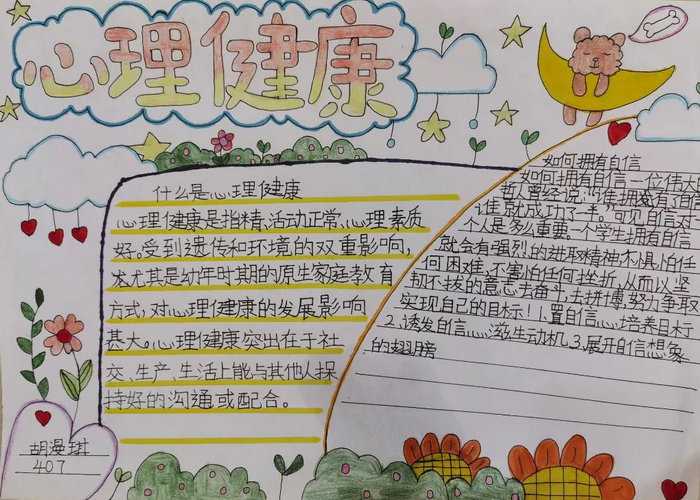 心理健康
什么是心理健康
心理健康是指精,活动正常、心理素质
好。受到遗传和环境的双重影响,
尤其是幼年时期的原生家庭教育
方式,对心理健康的发展影响
甚大。心理健康突出在于社
交、生产、生活上能与其他人保
持好的沟通或配合。
如何拥有自信
如何拥有自信一位伟大
哲人曾经说:"谁拥有了自信
谁就成功了一半。可见自信对
个人是多么重要。一个学生拥有自信
就会有强烈的进取精神不惧怕任
何困难,不害怕任何挫折,从而以坚
韧不拔的意志去奋斗去拼博,努力争取
实现自己的目标!1.置自信心培养日木丁
2.诱发自信心滋生动机3.展开自信想象
的翅膀
胡漫琪
407